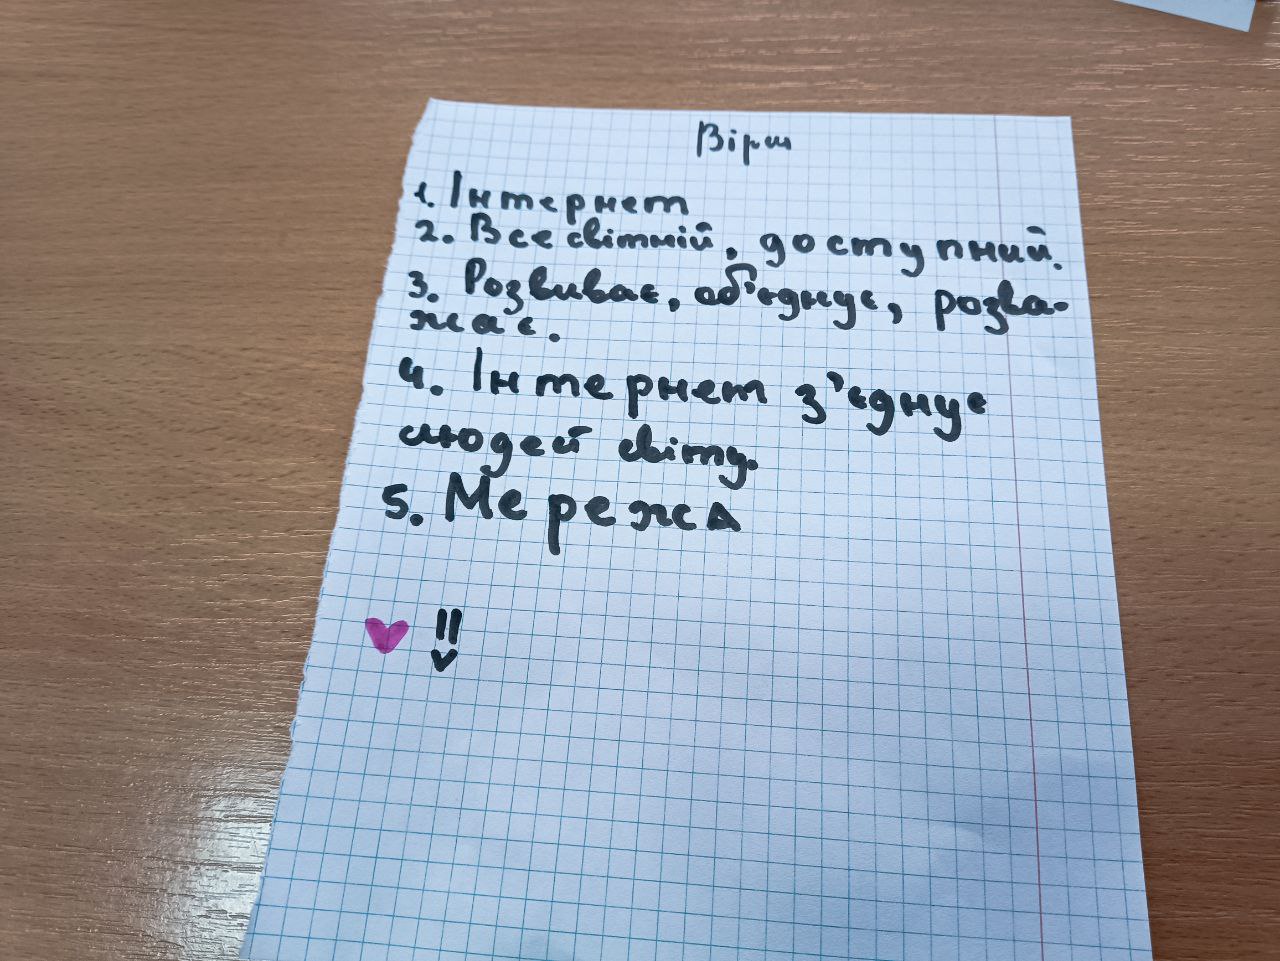 Вірш
1. Інтернет
2. Всесвітній, доступний.
3. Розвиває, об'єднує, розва-
жає.
4. Інтернет з'єднує
людей світу.
5. Мережа